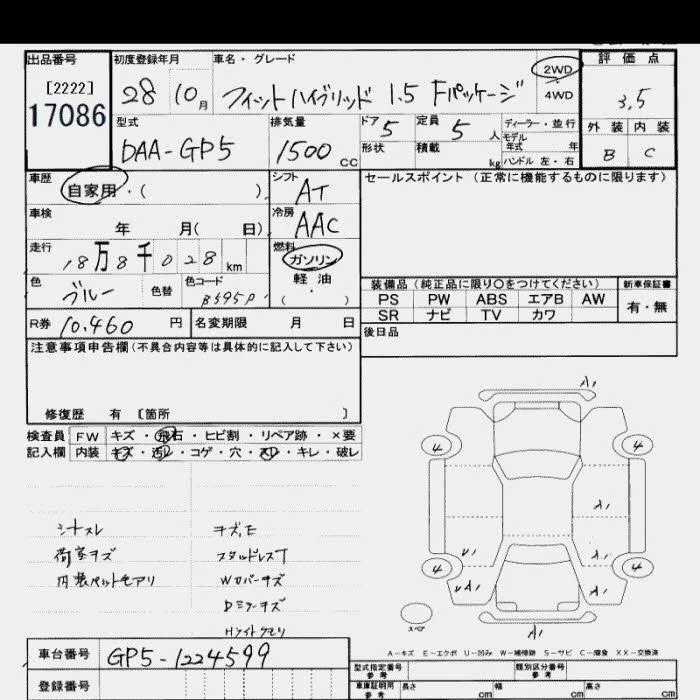 出品番号 初度登録年月 車名・グレード 2WD 評価点
[2222] 28 10月 フィットハイブリッド 1.5 Fパッケージ 4WD 3.5
17086
型式 排気量 ドア 定員 ディーラー・並行 外装 内装
DAA-GP5 1500cc 5 5人 モデル年式 年 B C
形状 積載 kg ハンドル 左・右
車歴 シフト セールスポイント (正常に機能するものに限ります)
自家用・( ) AT
車検 冷房
年 月( 日) AAC
走行 燃料
18万8千028km ガソリン
色 色替 色コード 軽油 装備品(純正品に限り○をつけてください) 新車保証書
ブルー B595P ( ・ ) PS PW ABS エアB AW 有・無
R券 10,460円 名変期限 月 日 SR ナビ TV カワ
注意事項申告欄(不具合内容等は具体的に記入して下さい) 後日品
修復歴 有 [箇所 ]
検査員 FW キズ・飛石・ヒビ割・リペア跡・×要
記入欄 内装 キズ・汚レ・コゲ・穴・スレ・キレ・破レ
A1
4 4
A1
U1 A1
4 4
UA1 A1
スペア
A1
シートスレ キズ,E
荷室キズ スタッドレスT
内張ペットモアリ Wカバーキズ
Dミラーキズ
Hライトクモリ
A-キズ E-エクボ U-凹み W-補修跡 S-サビ C-腐食 XX-交換済
車台番号 GP5-1224599 型式指定番号 参考 類別区分番号 参考
登録番号 車庫証明用 参考 長さ cm 幅 cm 高さ cm